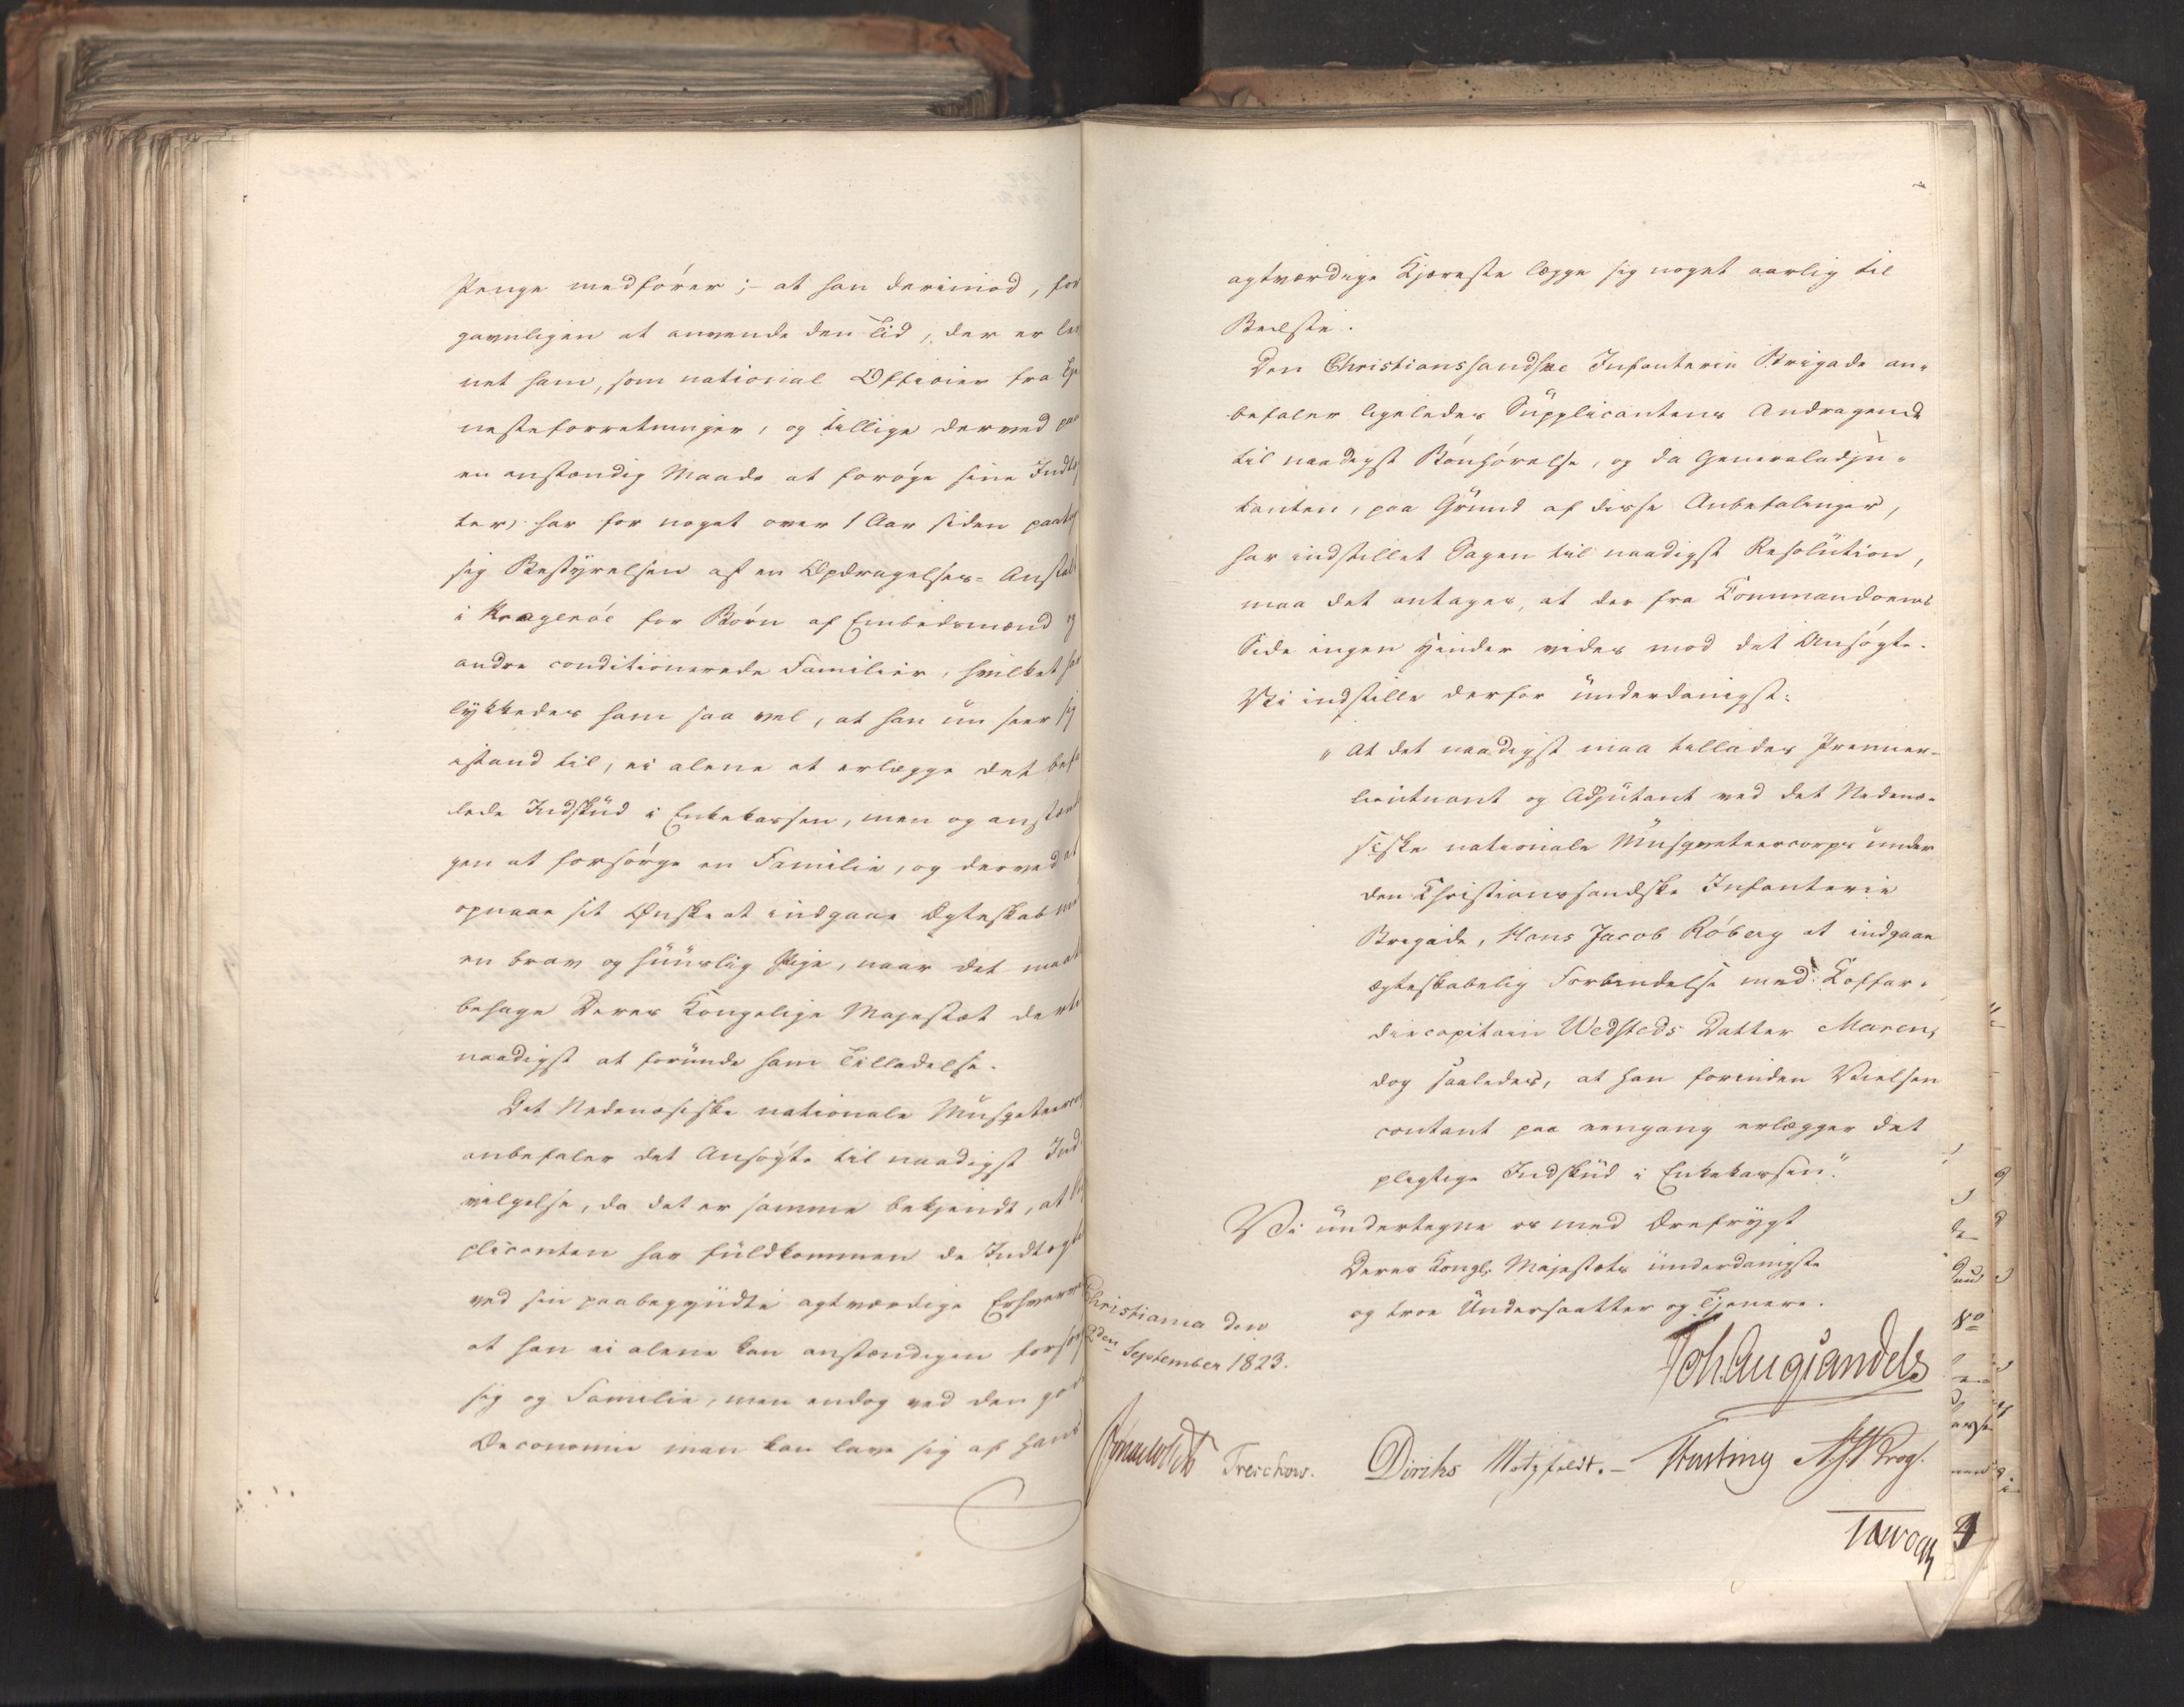 Penge medfører; – at han derimod, for
gavnligen at anvende den Tid, der er lev
net ham, som national Officier fra Tje
nesteforretninger, og tillige derved paa
en anstændig Maade at forøge sine Indtæg
ter, har for noget over 1 Aar siden paataget
sig Bestyrelsen af en Opdragelses-Anstalt
i Kragerøe for Børn af Embedsmænd og
andre conditionerede Familier, hvilket har
lykkedes ham saa vel, at han nu seer sig
istand til, ei alene at erlægge det befa
lede Indskud i Enkekassen, men og anstændi
gen at forsørge en Familie, og derved at
opnaae sit Ønske at indgaae Ægteskab med
en brav og huuslig Pige, naar det maatte
behage Deres Kongelige Majestæt dertil
naadigst at forunde ham Tilladelse.
Det Nedenæsiske nationale Musqveteercorps
anbefaler det Ansøgte til naadigst Ind
vilgelse, da det er samme bekjendt, at Sup
plicanten har fuldkommen de Indtægter
ved sin paabegyndte agtværdige Erhverv
at han ei alene kan anstændigen forsørge
sig og Familie, men endog ved den gode
Oeconomie man kan love sig af hans
agtværdige Kjæreste lægge sig noget aarlig til
Bedste.
Den Christianssandske Infanterie Brigade an-
befaler ligeledes Supplicantens Andragende
til naadigst Bønhørelse, og da Generaladju-
tanten, paa Grund af disse Anbefalinger,
har indstillet Sagen til naadigst Resolution,
maa det antages, at der fra Commandoens
Side ingen Hinder vides mod det Ansøgte.
Vi indstille derfor underdanigst:
"At det naadigst maa tillades Premier-
lieutnant og Adjutant ved det Nedenæ-
siske nationale Musqveteercorps under
den Christianssandske Infanterie
Brigade, Hans Jacob Røberg at indgaae
ægteskabelig Forbindelse med Coffar-
diecapitain Wedsteds Datter Maren,
dog saaledes, at han forinden Vielsen
contant paa eengang erlægger det
pligtige Indskud i Enkekassen."
Vi undertegne os med Ærefrygt
Deres Kongl. Majestæts underdanigste
og troe Undersaatter og Tjenere.
Christiania den
2den September 1823.
Joh. Aug. Sandels
Sommerhielm Treschow. Diriks Motzfeldt. – Fasting J. H. Vogt.